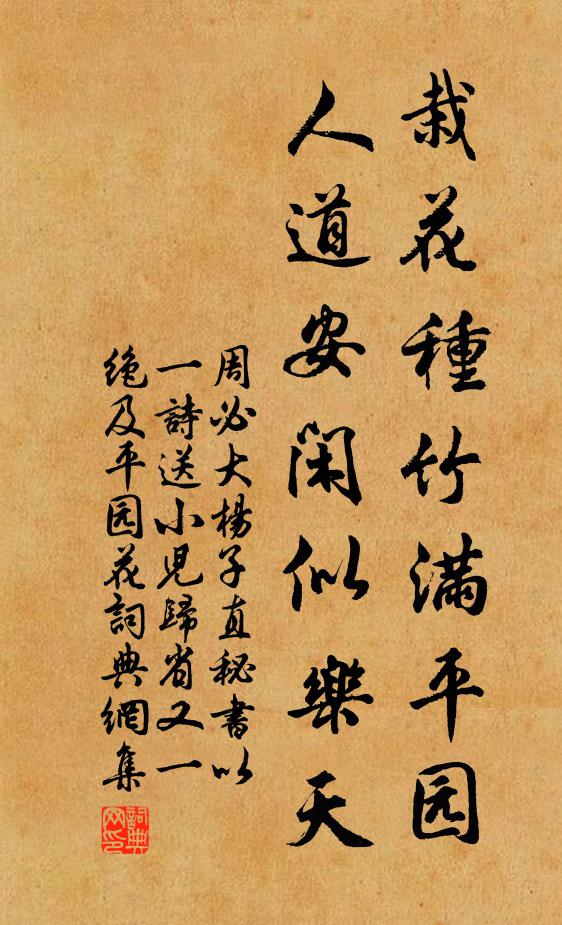 栽花種竹滿平园
人道安闲似樂天
周必大楊子直秘書以
一詩送小児歸省又一
絶及平园花詞典網集
詞典网印